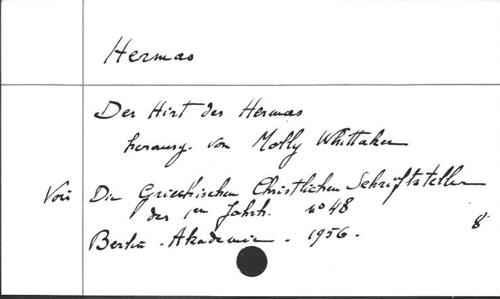 Hermas
Der Hirt des Hermas
herausg. von Molly Whittaker
Voir Die Griechischen Christlichen Schriftsteller
der 1en Jahrh. no 48
8°
Berlin - Akademie - 1956 -